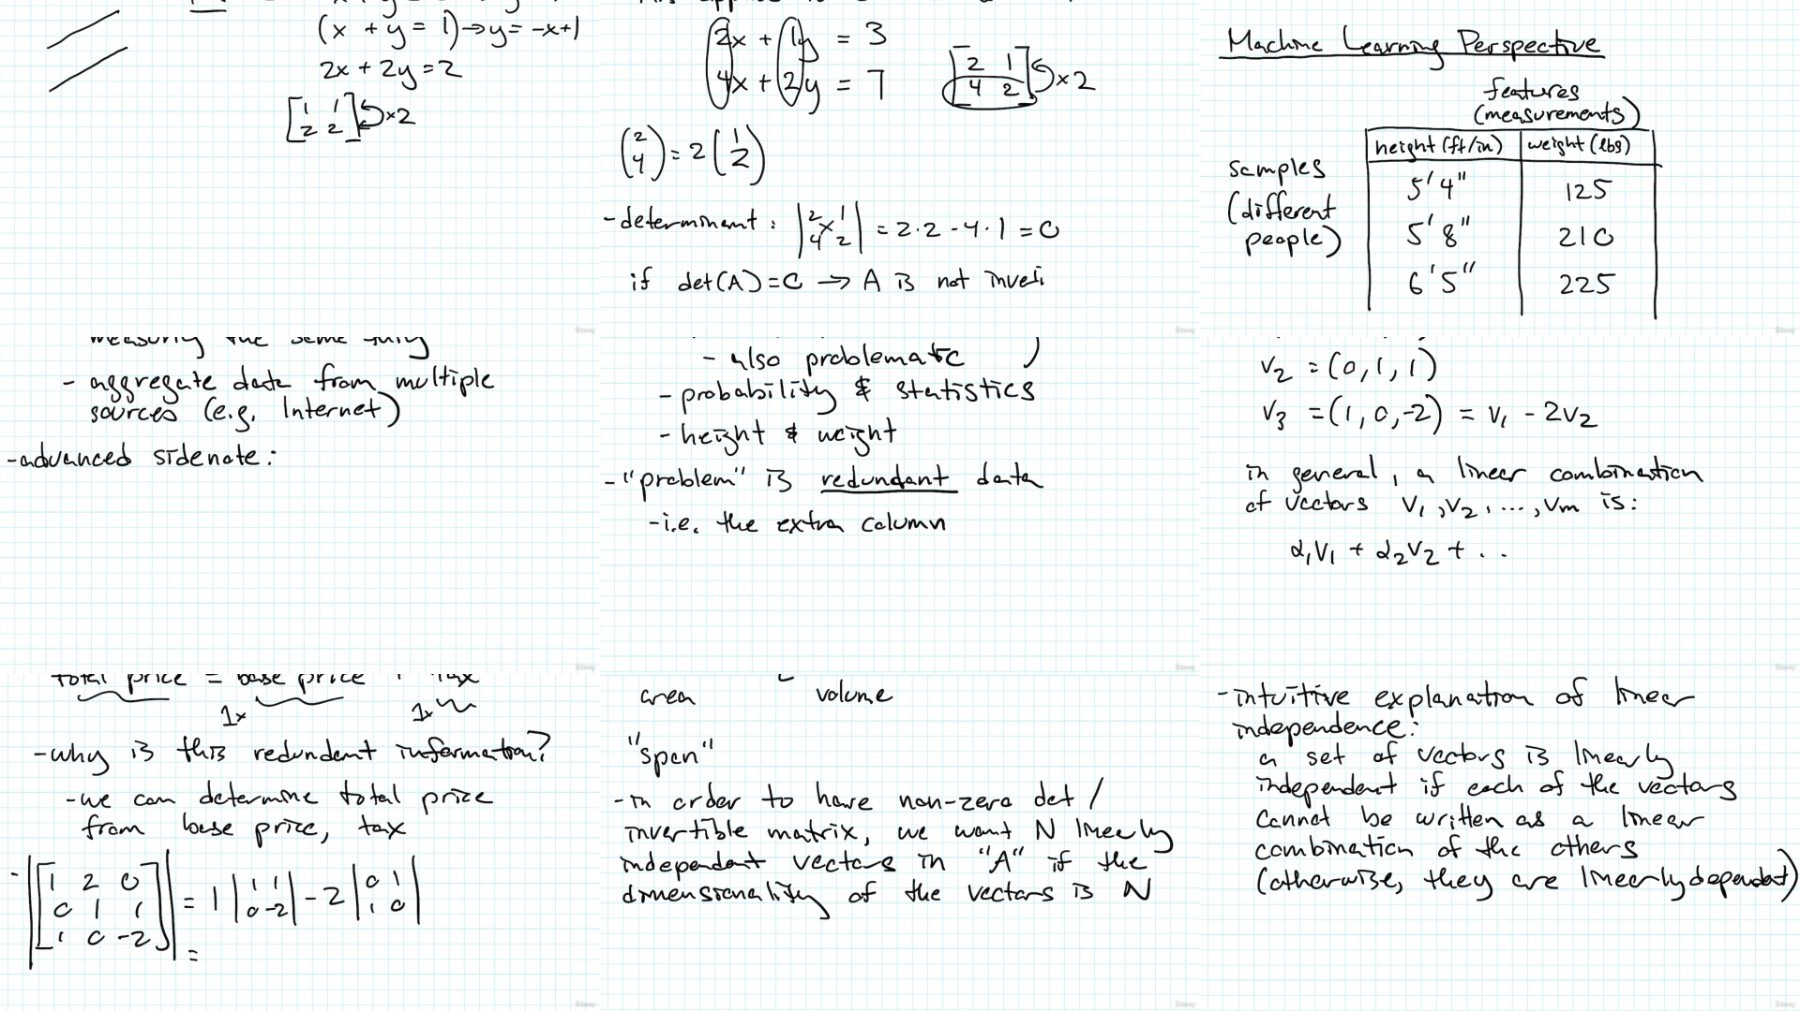 (x + y = 1) → y = -x+1
2x + 2y = 2
[1 1
2 2] ×2
(2x + 1y = 3
4x + 2y = 7
[2 1
4 2] ×2
(2
4) = 2 (1
2)
- determinant: |2 1
4 2| = 2·2 - 4·1 = 0
if det(A) = 0 → A is not inverti
Machine Learning Perspective
features
(measurements)
height (ft/in) weight (lbs)
samples
(different
people)
5'4" 125
5'8" 210
6'5" 225
measuring the same thing
- aggregate data from multiple
sources (e.g. Internet)
- advanced sidenote:
- also problematic )
- probability & statistics
- height & weight
- "problem" is redundant data
- i.e. the extra column
v2 = (0, 1, 1)
v3 = (1, 0, -2) = v1 - 2v2
in general, a linear combination
of vectors v1, v2, ..., vm is:
α1v1 + α2v2 + ..
total price = base price + tax
1x 1x
- why is this redundant information?
- we can determine total price
from base price, tax
- |[1 2 0
0 1 1
1 0 -2]| = 1 |1 1
0 -2| - 2 |0 1
1 0|
=
area volume
"span"
- in order to have non-zero det /
invertible matrix, we want N linearly
independent vectors in "A" if the
dimensionality of the vectors is N
- intuitive explanation of linear
independence:
a set of vectors is linearly
independent if each of the vectors
cannot be written as a linear
combination of the others
(otherwise, they are linearly dependent)